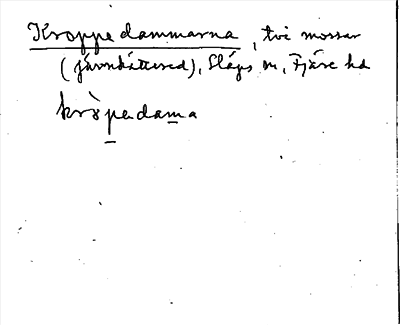 Kroppedammarna, två mossar
(Järnkättered), Släps sn, Fjäre hd
krò̀pedama